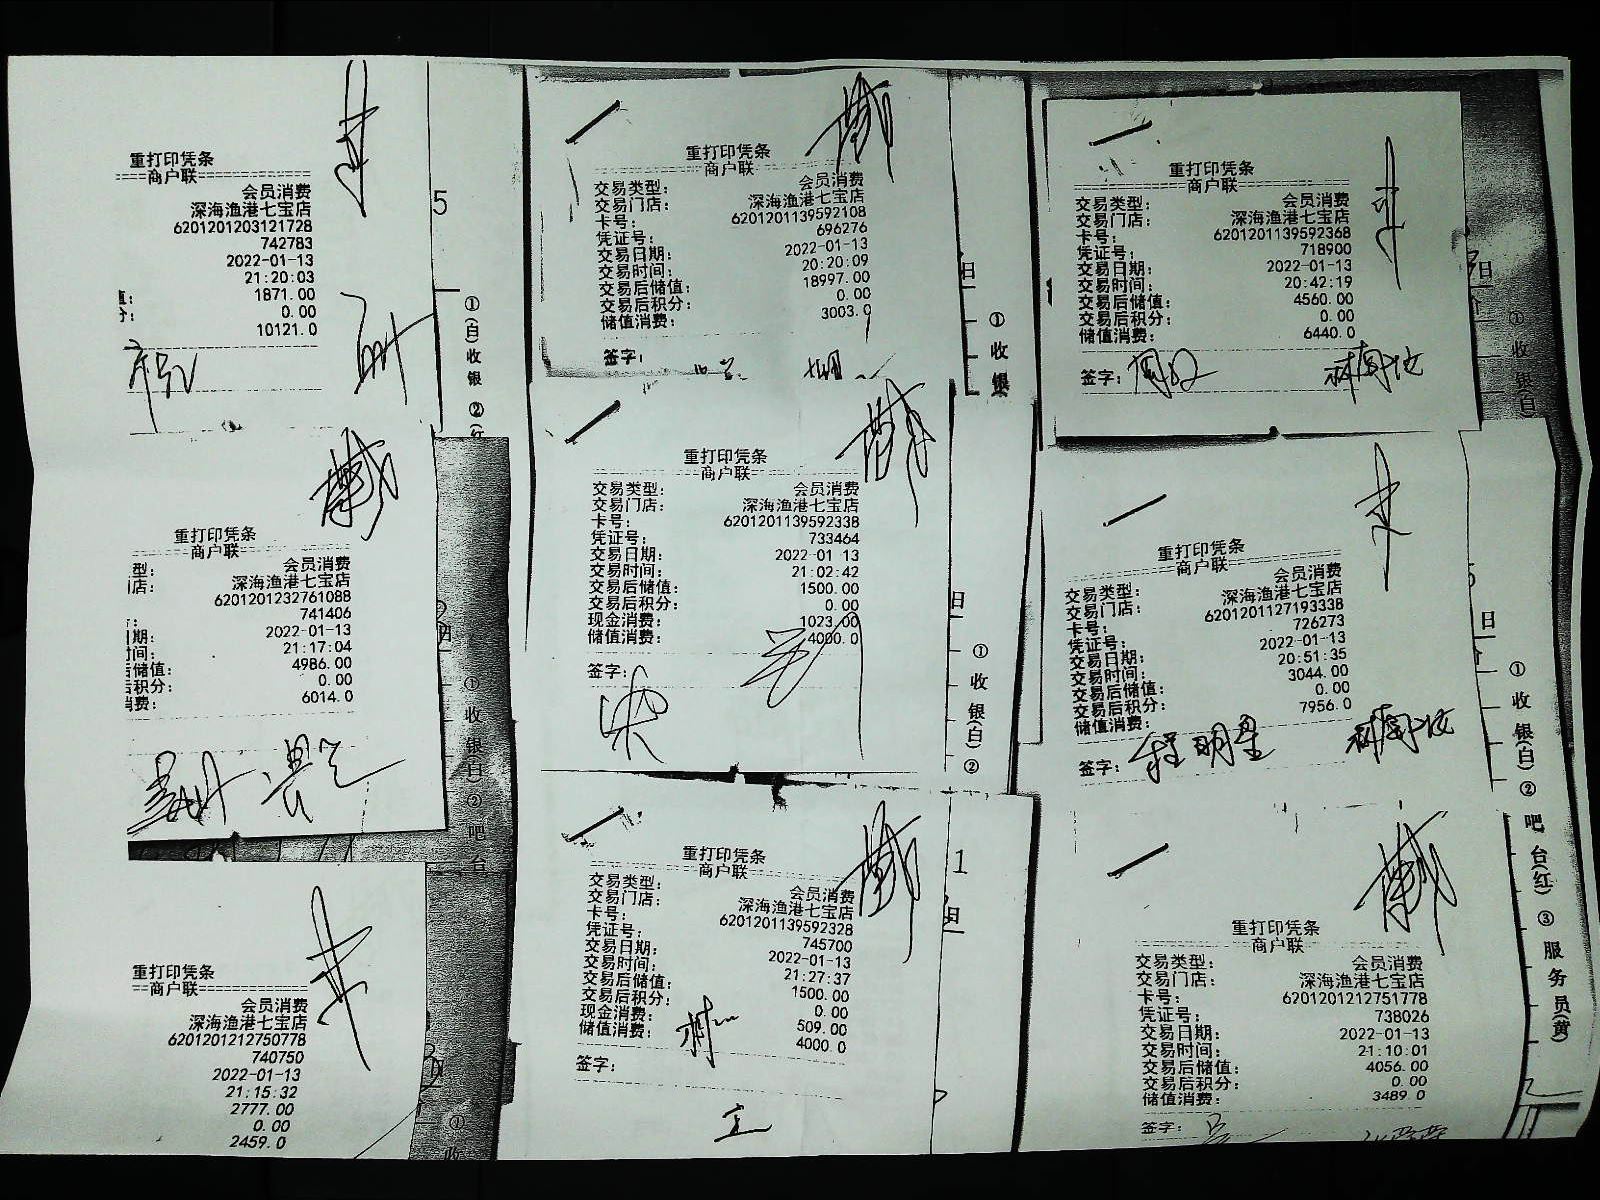 重打印凭条
====商户联================
会员消费
深海渔港七宝店
6201201203121728
742783
2022-01-13
21:20:03
值: 1871.00
分: 0.00
10121.0
5
①(白)收银 ②(红
重打印凭条
商户联
型: 会员消费
店: 深海渔港七宝店
6201201232761088
741406
期: 2022-01-13
间: 21:17:04
后储值: 4986.00
后积分: 0.00
消费: 6014.0
日
① 收银(白) ② 吧台
重打印凭条
==商户联================
会员消费
深海渔港七宝店
6201201212750778
740750
2022-01-13
21:15:32
2777.00
0.00
2459.0
① 收
重打印凭条
商户联
交易类型: 会员消费
交易门店: 深海渔港七宝店
卡号: 6201201139592108
凭证号: 696276
交易日期: 2022-01-13
交易时间: 20:20:09
交易后储值: 18997.00
交易后积分: 0.00
储值消费: 3003.0
签字:
日
① 收银
重打印凭条
商户联
交易类型: 会员消费
交易门店: 深海渔港七宝店
卡号: 6201201139592338
凭证号: 733464
交易日期: 2022-01-13
交易时间: 21:02:42
交易后储值: 1500.00
交易后积分: 0.00
现金消费: 1023.00
储值消费: 4000.0
签字:
日
① 收银(白) ②
重打印凭条
商户联
交易类型: 会员消费
交易门店: 深海渔港七宝店
卡号: 6201201139592328
凭证号: 745700
交易日期: 2022-01-13
交易时间: 21:27:37
交易后储值: 1500.00
交易后积分: 0.00
现金消费: 509.00
储值消费: 4000.0
签字:
1
日
重打印凭条
商户联
交易类型: 会员消费
交易门店: 深海渔港七宝店
卡号: 6201201139592368
凭证号: 718900
交易日期: 2022-01-13
交易时间: 20:42:19
交易后储值: 4560.00
交易后积分: 0.00
储值消费: 6440.0
签字:
日
① 收银(白)
重打印凭条
商户联
交易类型: 会员消费
交易门店: 深海渔港七宝店
卡号: 6201201127193338
凭证号: 726273
交易日期: 2022-01-13
交易时间: 20:51:35
交易后储值: 3044.00
交易后积分: 0.00
储值消费: 7956.0
签字: 程明星
日
① 收银(白) ② 吧台(红) ③ 服务员(黄)
重打印凭条
商户联
交易类型: 会员消费
交易门店: 深海渔港七宝店
卡号: 6201201212751778
凭证号: 738026
交易日期: 2022-01-13
交易时间: 21:10:01
交易后储值: 4056.00
交易后积分: 0.00
储值消费: 3489.0
签字: